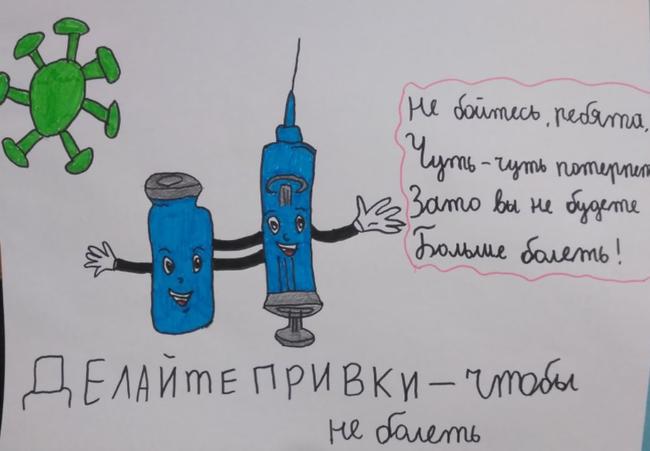 Не бойтесь, ребята,
Чуть-чуть потерпет
Зато вы не будете
Больше болеть!
ДЕЛАЙТЕ ПРИВКИ – чтобы
не болеть